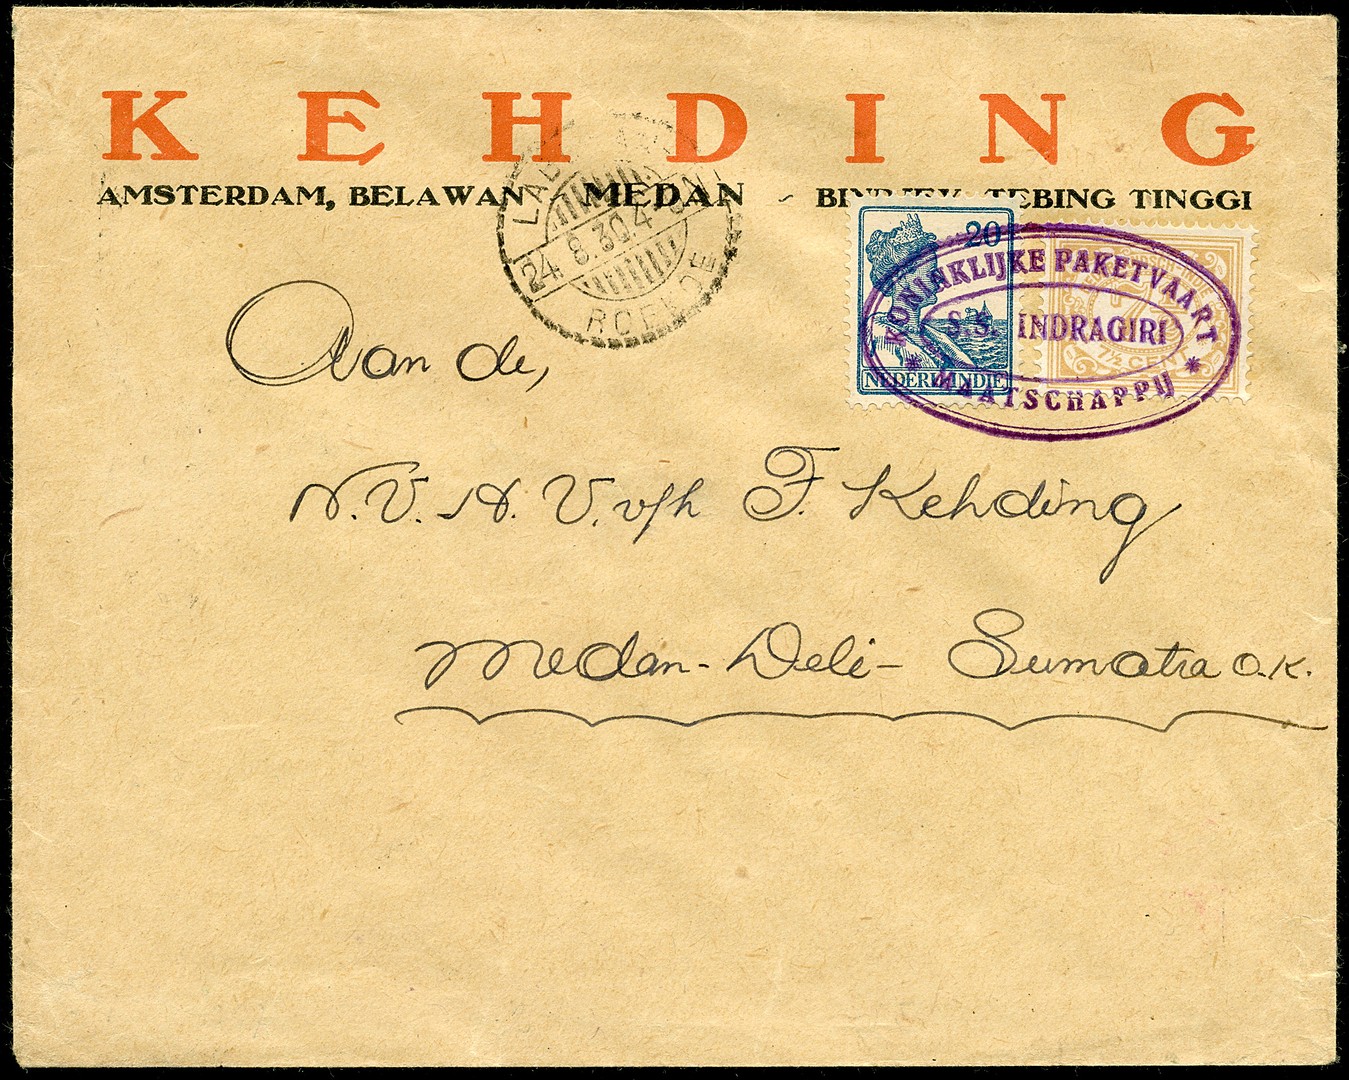 KEHDING
AMSTERDAM, BELAWAN - MEDAN - BINDJEY, TEBING TINGGI
24.8.30.4
ROEKOE
20
NEDERL. INDIE
7½ CENT
KONINKLIJKE PAKETVAART
S.S. INDRAGIRI
* MAATSCHAPPIJ *
Aan de,
N.V. H. V. v/h F. Kehding
Medan - Deli - Sumatra O.K.